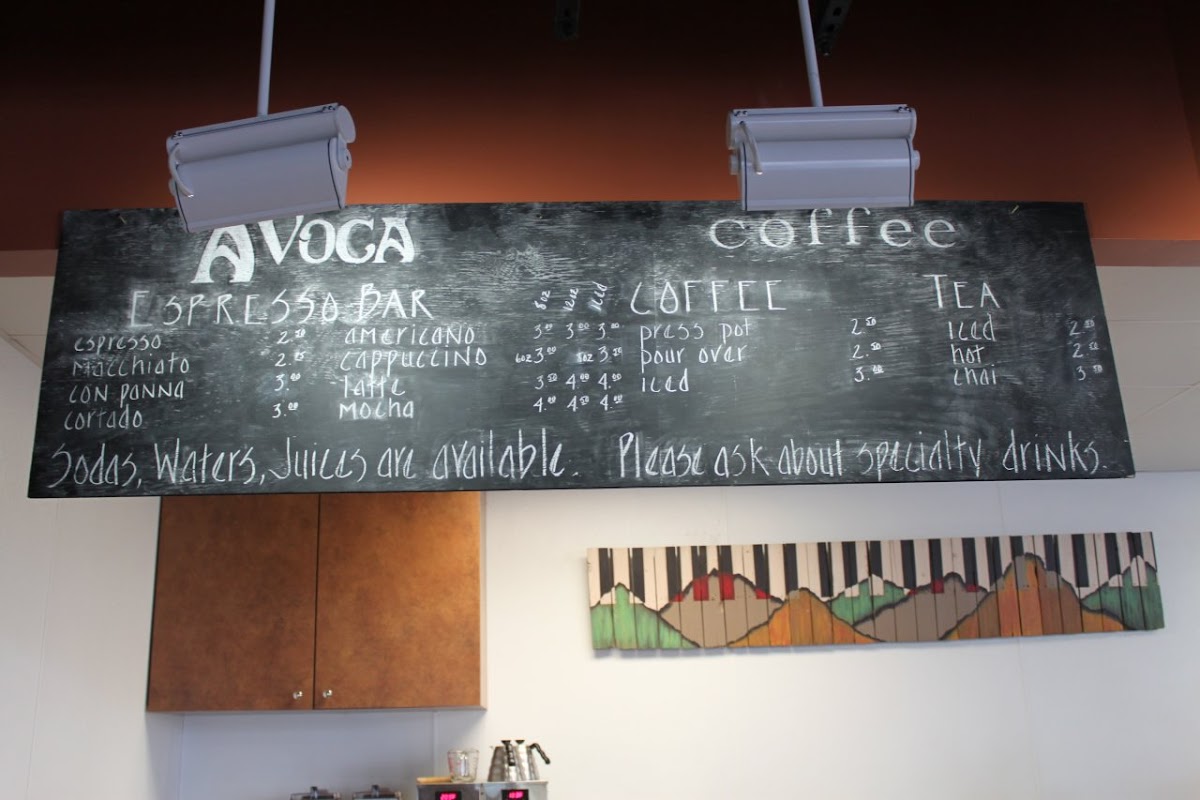 AVOCA coffee
ESPRESSO BAR 8oz 12oz iced COFFEE TEA
espresso 2.50 americano 3.00 3.00 3.00 press pot 2.50 iced 2.50
macchiato 2.75 cappuccino 6oz 3.00 8oz 3.50 pour over 2.50 hot 2.50
con panna 3.00 latte 3.50 4.00 4.00 iced 3.00 chai 3.50
cortado 3.00 mocha 4.00 4.50 4.00
Sodas, Waters, Juices are available. Please ask about specialty drinks.